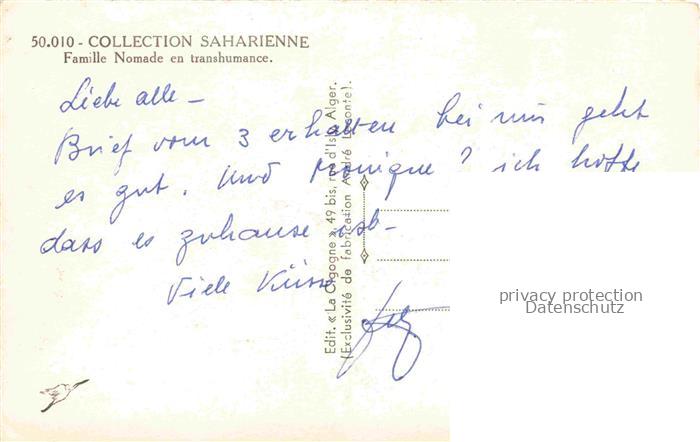 50.010 - COLLECTION SAHARIENNE
Famille Nomade en transhumance.
Liebe alle -
Brief vom 3 erhalten bei mir geht
es gut. Und Monique? ich hoffe
dass es zuhause ist -
Viele Küsse
Edit. « La Cigogne » 49 bis, rue d'Isly Alger.
(Exclusivité de fabrication André Leconte).
privacy protection
Datenschutz